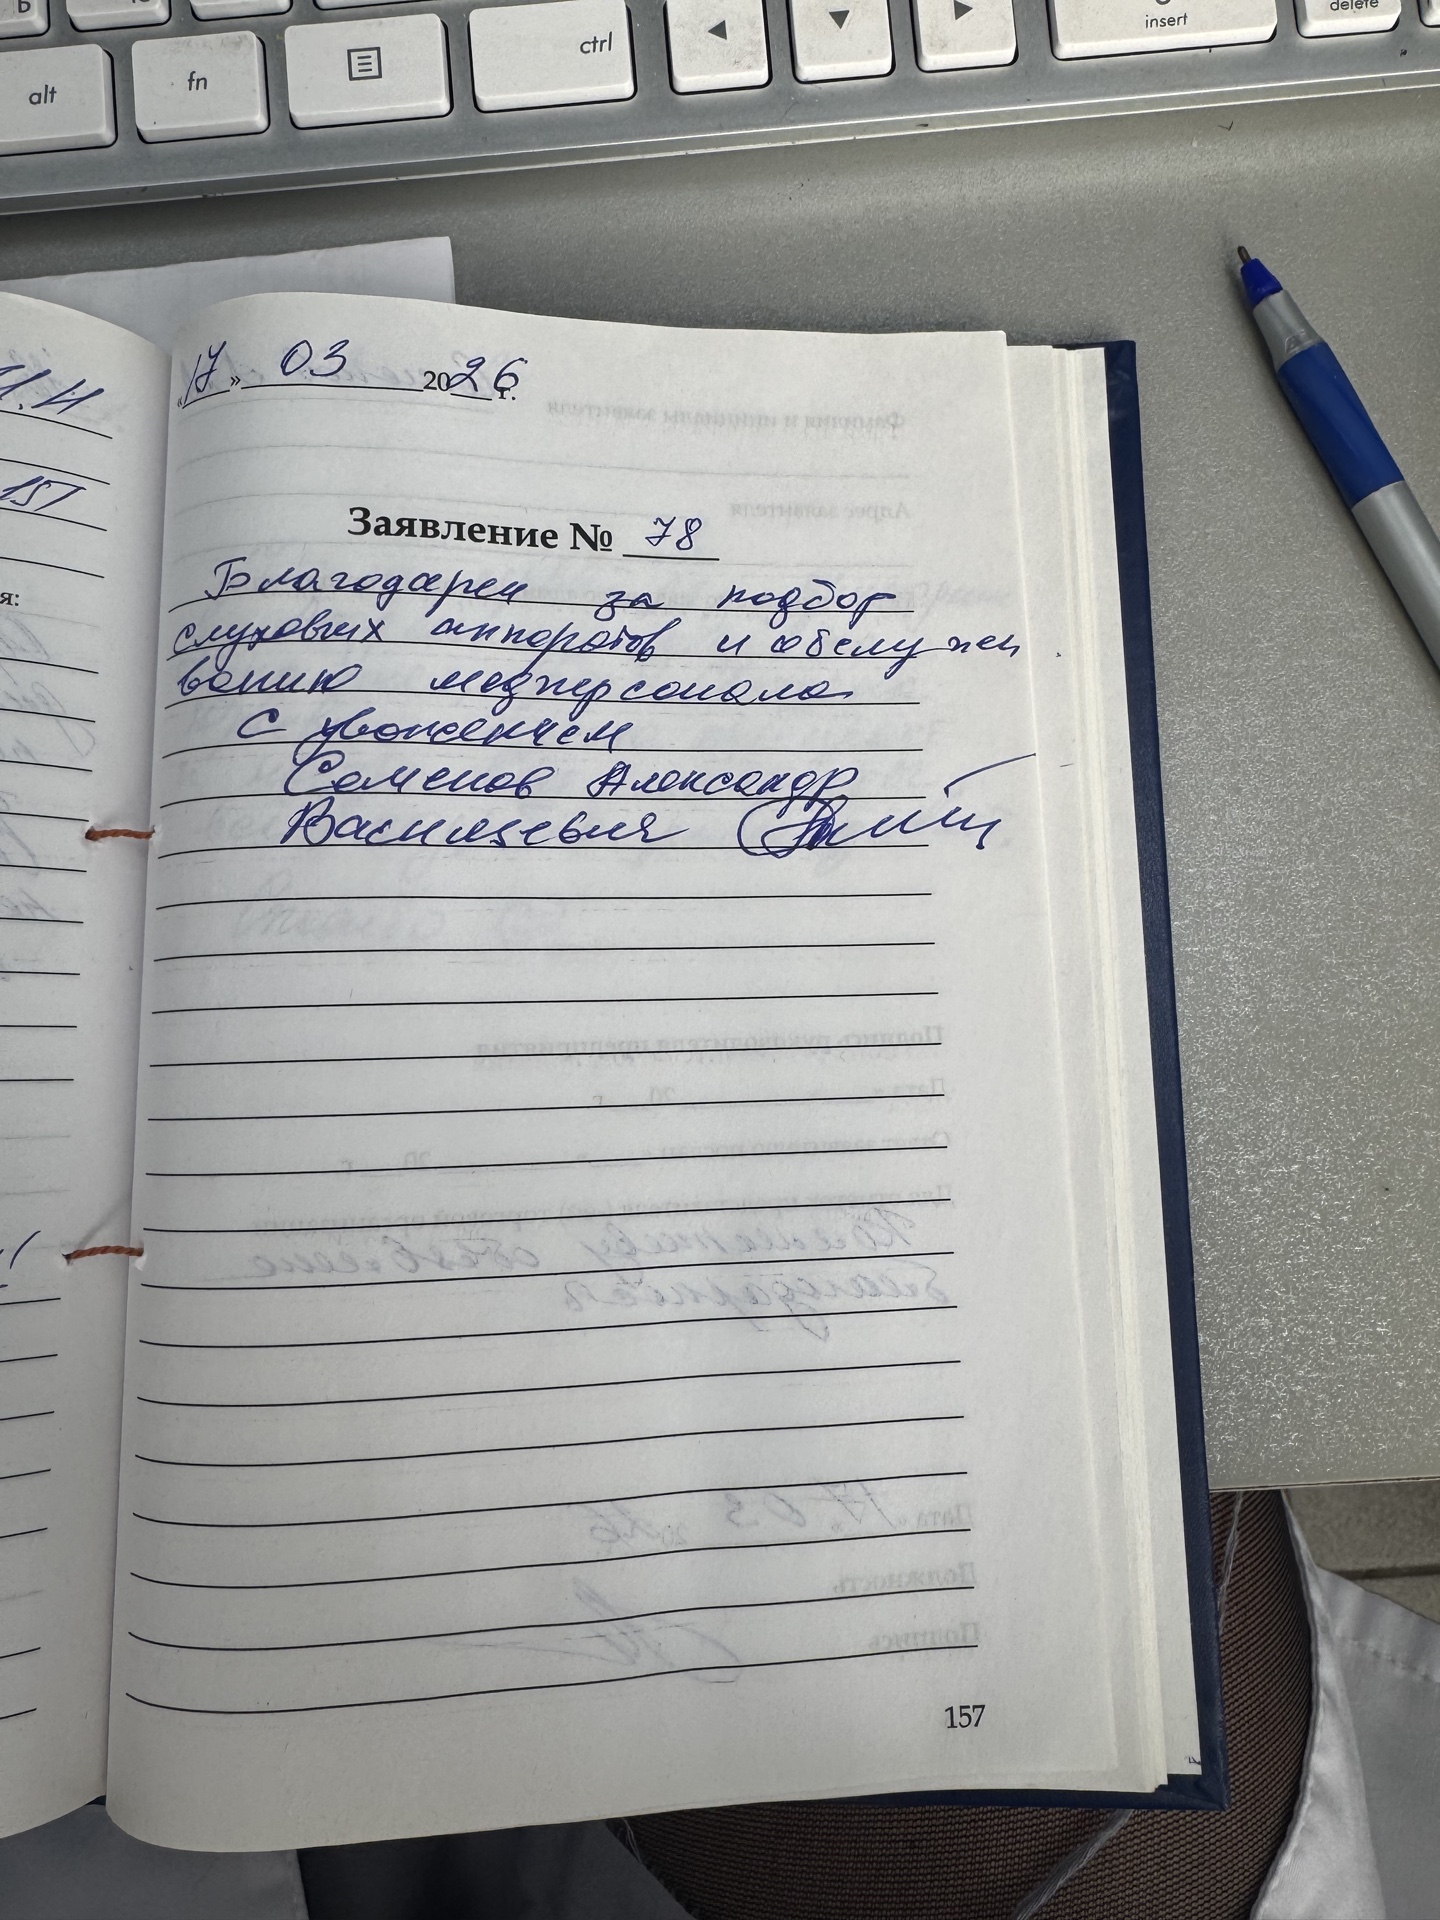 alt
fn
ctrl
insert
delete
«17» 03 2026 г.
Заявление № 78
Благодарен за подбор
слуховых аппаратов и обслужи
ванию медперсонала
С уважением
Семенов Александр
Васильевич
157